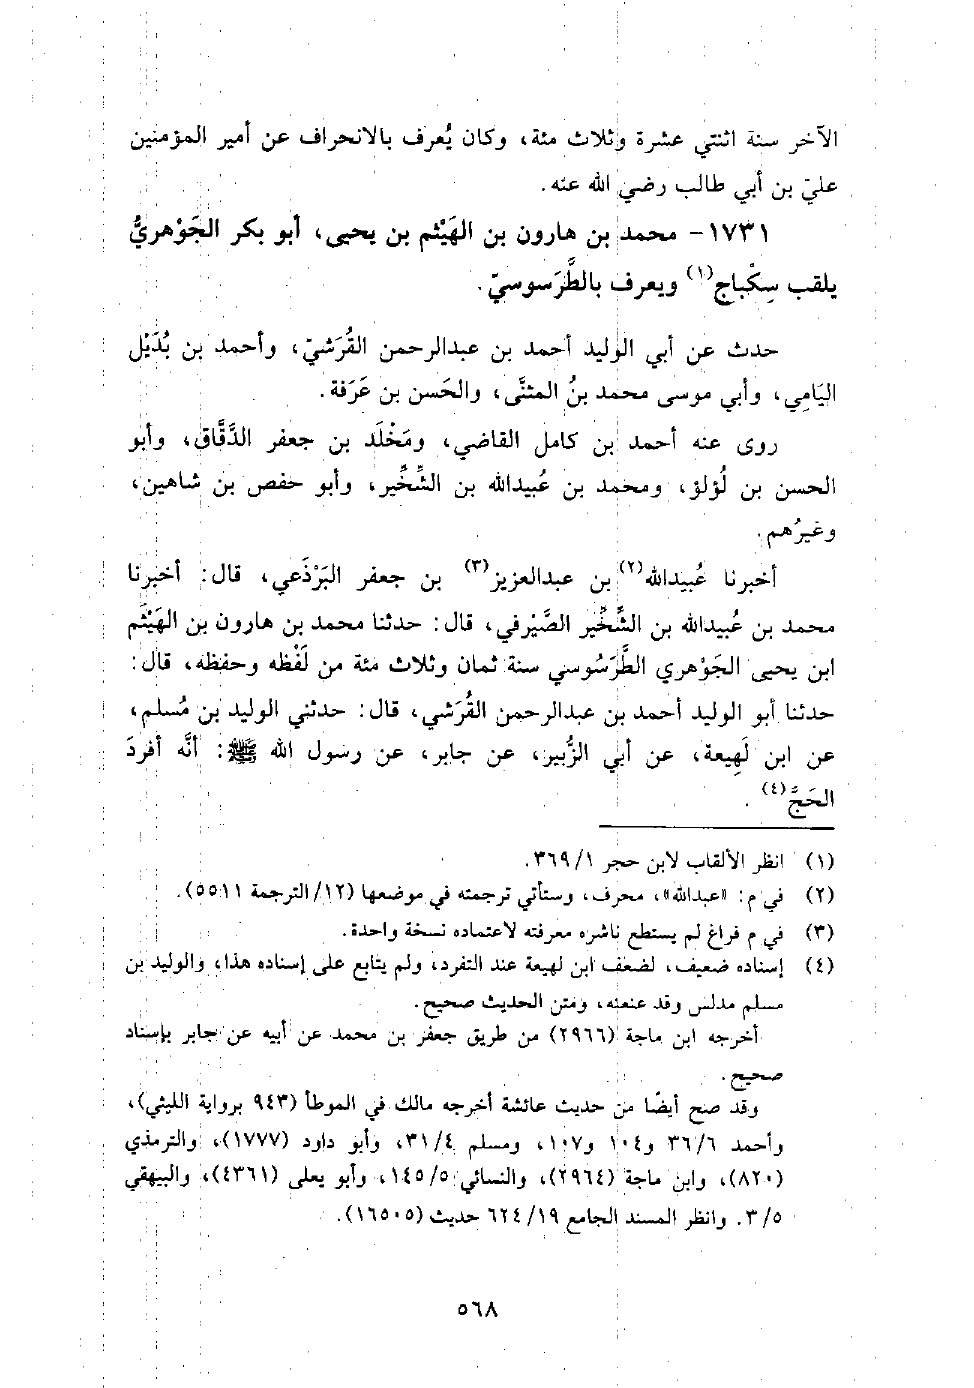 الآخر سنة اثنتي عشرة وثلاث مئة، وكان يُعرف بالانحراف عن أمير المؤمنين
عليّ بن أبي طالب رضي الله عنه.
١٧٣١- محمد بن هارون بن الهَيْثم بن يحيى، أبو بكر الجَوْهريُّ
يلقب سِكْباج(١) ويعرف بالطَّرَسوسيّ.
حدث عن أبي الوليد أحمد بن عبدالرحمن القُرَشيّ، وأحمد بن بُدَيْل
اليَامِي، وأبي موسى محمد بنُ المثنَّى، والحَسن بن عَرَفة.
روى عنه أحمد بن كامل القاضي، ومَخْلَد بن جعفر الدَّقَّاق، وأبو
الحسن بن لُؤلؤ، ومحمد بن عُبيدالله بن الشِّخِّير، وأبو حفص بن شاهين،
وغيرُهم.
أخبرنا عُبيدالله(٢) بن عبدالعزيز(٣) بن جعفر البَرْذَعي، قال: أخبرنا
محمد بن عُبيدالله بن الشِّخِّير الصَّيْرفي، قال: حدثنا محمد بن هارون بن الهَيْثَم
ابن يحيى الجَوْهري الطَّرَسُوسي سنة ثمان وثلاث مئة من لَفْظه وحفظه، قال:
حدثنا أبو الوليد أحمد بن عبدالرحمن القُرَشي، قال: حدثني الوليد بن مُسلم،
عن ابن لَهِيعة، عن أبي الزُّبير، عن جابر، عن رسول الله ﷺ: أنَّه أفردَ
الحَجَّ(٤).
(١) انظر الألقاب لابن حجر ١/ ٣٦٩.
(٢) في م: «عبدالله»، محرف، وستأتي ترجمته في موضعها (١٢/ الترجمة ٥٥١١).
(٣) في م فراغ لم يستطع ناشره معرفته لاعتماده نسخة واحدة.
(٤) إسناده ضعيف، لضعف ابن لهيعة عند التفرد، ولم يتابع على إسناده هذا، والوليد بن
مسلم مدلس وقد عنعنه، ومتن الحديث صحيح.
أخرجه ابن ماجة (٢٩٦٦) من طريق جعفر بن محمد عن أبيه عن جابر بإسناد
صحيح.
وقد صح أيضًا من حديث عائشة أخرجه مالك في الموطأ (٩٤٣ برواية الليثي)،
وأحمد ٦/ ٣٦ و١٠٤ و١٠٧، ومسلم ٤/ ٣١، وأبو داود (١٧٧٧)، والترمذي
(٨٢٠)، وابن ماجة (٢٩٦٤)، والنسائي ٥/ ١٤٥، وأبو يعلى (٤٣٦١)، والبيهقي
٥/ ٣. وانظر المسند الجامع ١٩/ ٦٢٤ حديث (١٦٥٠٥).
٥٦٨